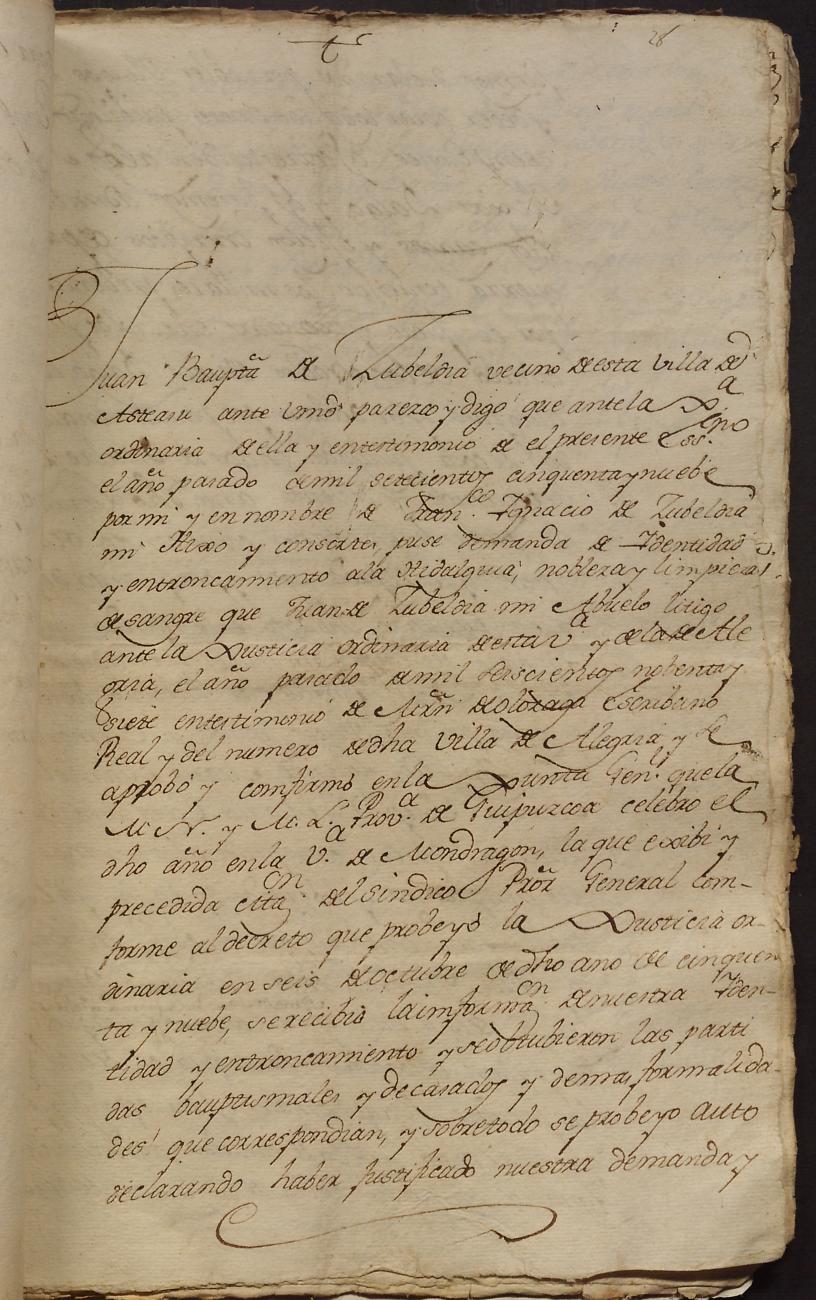 28
Juan Bauptã de Zubeldia vecino de esta villa de
Asteasu ante Vmd parezco y digo que ante la Jª
ordinaria de ella y en testimonio de el presente Essno
el año pasado de mil setecientos cinquenta y nuebe
por mi y en nombre de Franco Ignacio de Zubeldia
mi Hixo y consortes, puse demanda de Identidad
y entroncamiento ala Hidalguia, nobleza y limpieza
de sangre que Juan de Zubeldia mi Abuelo litigo
ante la Justicia ordinaria de esta Vª y de la de Ale
gria, el año pasado de mil seiscientos nobenta y
siete en testimonio de Mrñ de olozaga escribano
Real y del numero de dha villa de Alegria y se
aprobó y confirmó en la Junta Genl que la
M. N. y M. L. Provª de Guipuzcoa celebro el
dho año en la Vª de Mondragon, la que exibi y
precedida citaon del sindico Pror̃ General com-
forme al decreto que probeyó la Justicia or-
dinaria en seis de octubre de dho ano de cinquen
ta y nuebe, se recibió la informaon de nuestra Iden-
tidad y entroncamiento y se obtubieron las parti
das bauptismales y de casados y demas formalida-
des que correspondian, y sobre todo se probeyo auto
declarando haber justificado nuestra demanda y